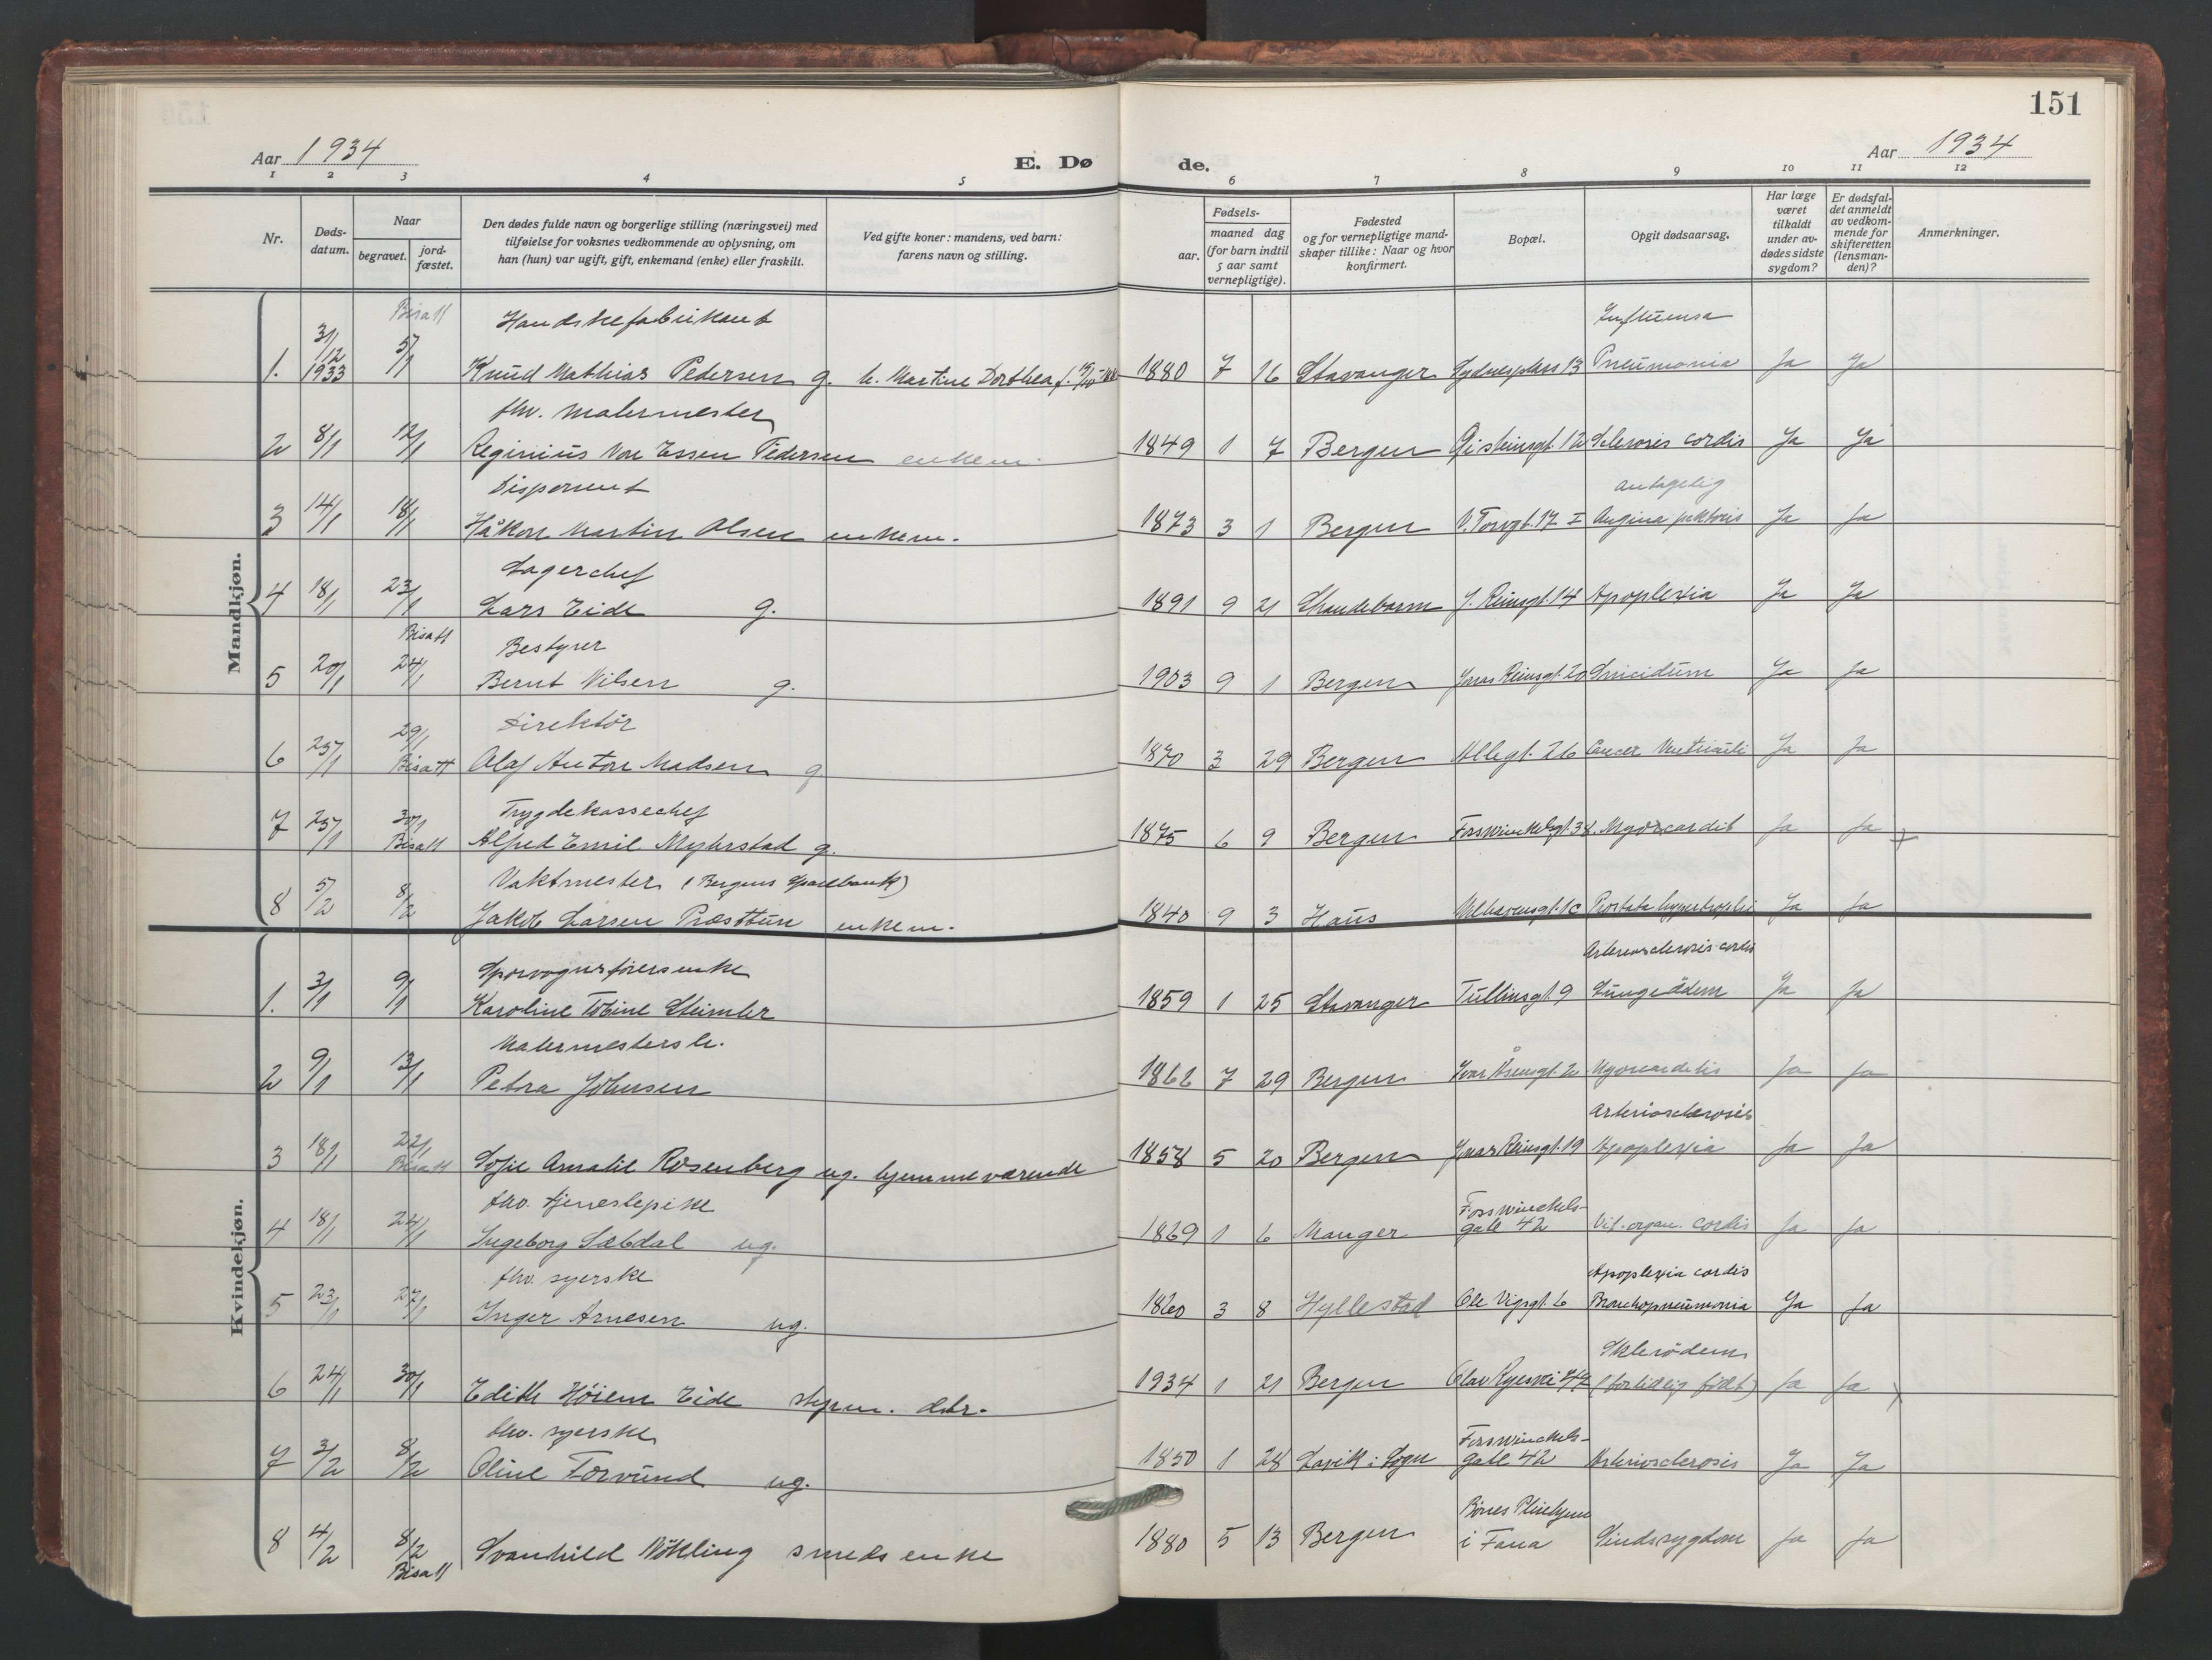 151
Aar 1934
E. Dø de.
Aar 1934
1 2 3 4 5 6 7 8 9 10 11 12
Nr.
Døds-
datum.
Naar
begravet.
jord-
fæstet.
Den dødes fulde navn og borgerlige stilling (næringsvei) med
tilføielse for voksnes vedkommende av oplysning, om
han (hun) var ugift, gift, enkemand (enke) eller fraskilt.
Ved gifte koner: mandens, ved barn:
farens navn og stilling.
aar.
Fødsels-
maaned dag
(for barn indtil
5 aar samt
vernepligtige).
Fødested
og for vernepligtige mand-
skaper tillike: Naar og hvor
konfirmert.
Bopæl.
Opgit dødsaarsag.
Har læge
været
tilkaldt
under av-
dødes sidste
sygdom?
Er dødsfal-
det anmeldt
av vedkom-
mende for
skifteretten
(lensman-
den)?
Anmerkninger.
Mandkjøn.
Bisatt Handskefabrikant Influensa
1. 31/12 1933 5/1 Knud Mathias Pedersen g. h. Martine Dorthea 1880 7 16 Stavanger Sydnesplass 13 Pneumonia Ja Ja
fhv. malermester
2 8/1 12/1 Reginius Von Essen Pedersen enkem. 1849 1 7 Bergen 12 Sclerosis cordis Ja Ja
Disponent antagelig
3 14/1 18/1 Håkon Martin Olsen enkem. 1873 3 1 Bergen V. Torvgt. 17 I Angina pektoris Ja Ja
Lagerchef
4 18/1 23/1 Lars Eide g. 1891 9 21 Strandebarm J. Reinsgt. 14 Apoplexia Ja Ja
Bisatt Bestyrer
5 20/1 24/1 Bernt Nilsen g. 1903 9 1 Bergen Jonas Reinsgt. 20 Suicidum Ja Ja
29/1 Direktör
6 25/1 Bisatt Olaf Anton Madsen g 1870 3 29 Bergen Allegt. 26 Cancer Ventriculi Ja Ja
30/1 Trygdekassechef
7 25/1 Bisatt Alfred Emil Myhrstad g. 1875 6 9 Bergen Fosswinckelsgt. 38. Myocardit Ja Ja
Vaktmester (Bergens Sparebank)
8 5/2 8/2 Jakob Larsen Præsttun enkem. 1840 9 3 Haus Welhavensgt. 1c Prostata hypertrophi Ja Ja
Kvindekjøn.
Sporvognsförers enke Arteriosclerosis cordis
1. 3/1 9/1 Karoline Tobine Steimler 1859 1 25 Stavanger Tullinsgt. 9 Lungeödem Ja Ja
Malermesters h.
2 9/1 13/1 Petra Johnsen 1862 7 29 Bergen Ivar Åsensgt. 2 Myocarditis Ja Ja
22/1 Arteriosclerosis
3 18/1 Bisatt Sofie Amalie Rosenberg ug. hjemmeværende 1858 5 20 Bergen Jonas Reinsgt. 19 Apoplexia Ja Ja
fhv. tjenestepike Fosswinckels-
4 18/1 24/1 Ingeborg Sæbdal ug. 1869 1 6 Manger gate 42 Vit. organ. cordis Ja Ja
fhv. syerske Apoplexia cordis
5 23/1 27/1 Inger Arnesen ug. 1860 3 8 Hyllestad Ole Vigsgt. 6 Bronchopneumonia Ja Ja
Sklerödem
6 24/1 30/1 Edith Höiem Eide styrm. dtr. 1934 1 21 Bergen Olav Ryesvei (fortidlig født) Ja Ja
fhv. syerske Fosswinckels-
7 3/2 8/2 Oline Torvund ug. 1850 1 28 Lavik i Sogn gate 42 Arteriosclerosis Ja Ja
Bönes Pleiehjem
8 4/2 8/2 Svanhild Nökling smeds enke 1880 5 13 Bergen i Fana Sindssygdom Ja Ja
Bisatt